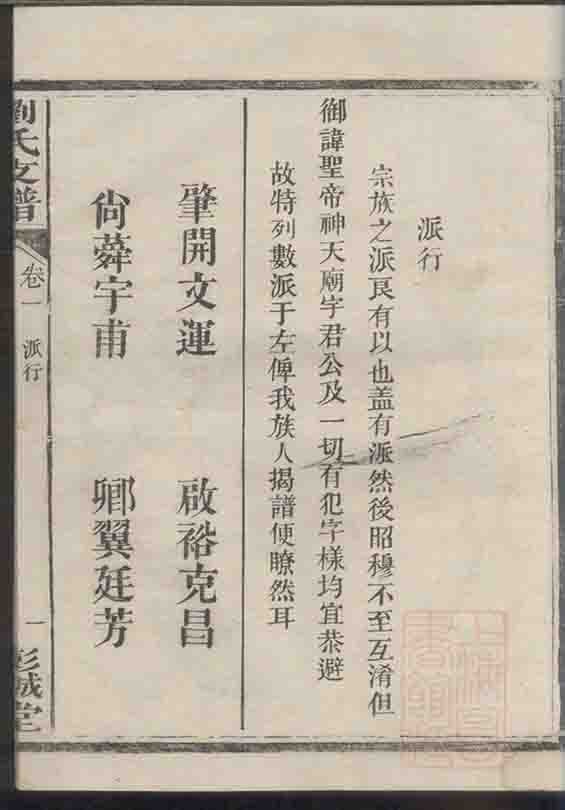 派行
宗族之派良有以也盖有派然後昭穆不至互淆但
御諱聖帝神天廟字君公及一切有犯字様均宜恭避
故特列數派于左俾我族人揭譜便瞭然耳
肇開文運 啟裕克昌
尙蕣宇甫 卿翼廷芳
劉氏支譜 卷一 派行 一 彭城堂